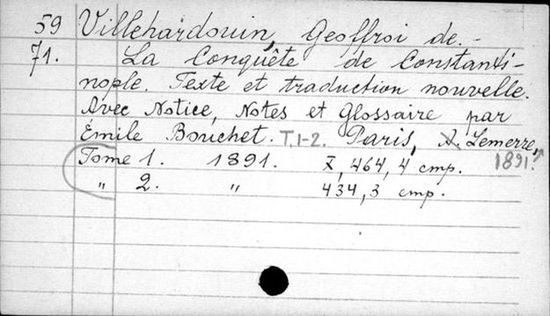 59 Villehardouin, Geoffroi de.-
71. La Conquête de Constanti-
nople. Texte et traduction nouvelle.
Avec Notice, Notes et Glossaire par
Émile Bouchet. T.1-2. Paris, A. Lemerre,
1891.
Tome 1. 1891. X, 464, 4 cmp.
" 2. " 434, 3 cmp.